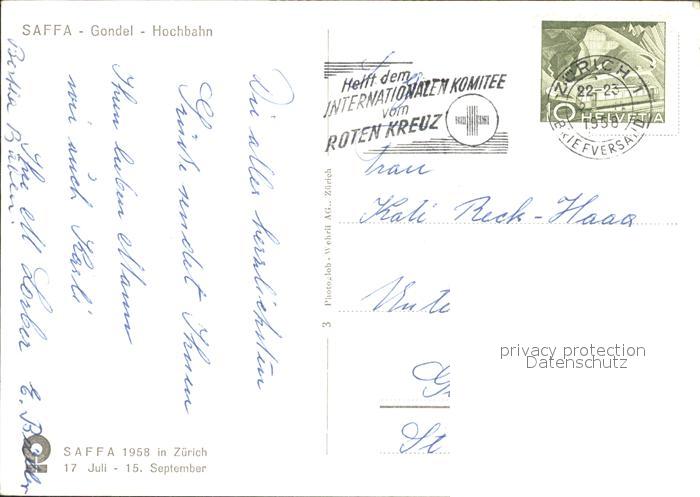 SAFFA - Gondel - Hochbahn
Die aller herzlichsten
Grüsse sendet Ihnen
Ihren lieben Mann
wie auch Karli
Ihre M.
SAFFA 1958 in Zürich
17 Juli - 15. September
3 Photoglob-Wehrli AG., Zürich
Helft dem
INTERNATIONALEN KOMITEE
vom
ROTEN KREUZ
ZÜRICH 1
22-23
1958
BRIEFVERSAND
10 HELVETIA
Frau
Kati Beck-Haag
Unte
G
St
privacy protection
Datenschutz